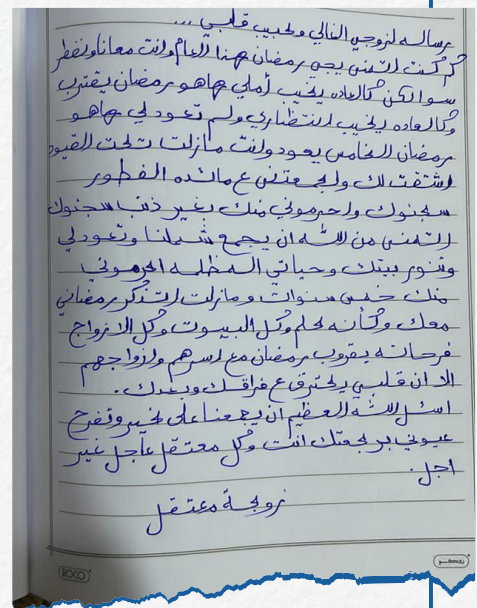 رساله لزوجي الغالي ولحبيب قلبي ...
كم كنت اتمنى يجي رمضان هذا العام وانت معانا ونفطر
سوا لكن كالعاده يخيب أملي هاهو رمضان يقترب
وكالعاده يخيب انتظاري ولم تعود لي هاهو
رمضان الخامس يعود وانت مازلت تحت القيود
اشتقت لك ولجمعتنى ع مائده الفطور
سجنوك واحرموني منك بغير ذنب سجنوك
اتمنى من الله ان يجمع شملنا وتعود لي
وتنور بيتك وحياتي المظلمه احرموني
منك خمس سنوات ومازلت اتذكر رمضاني
معك وكأنه حلم وكل البيوت وكل الازواج
فرحانه بقروب رمضان مع اسرهم وازواجهم
الا ان قلبي يحترق ع فراقك وبعدك.
اسئل الله العظيم ان يجمعنا على خير وتفرح
عيوني برجعتك انت وكل معتقل عاجل غير
اجل.
زوجة معتقل
ROCO
روكو